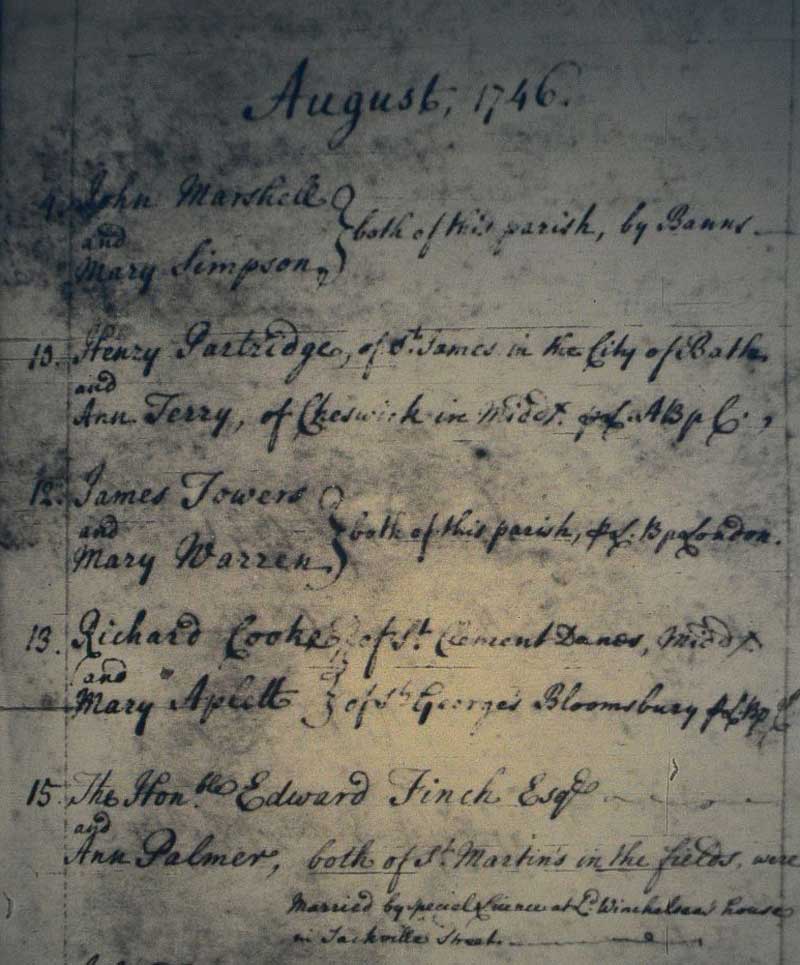 August, 1746.
4. John Marshell
and
both of this parish, by Banns
Mary Simpson.
13. Henry Partridge, of St. James in the City of Bath.
and
Ann Terry, of Cheswick in Middx. ABp C.
12. James Towers
and
both of this parish, Bp London.
Mary Warren.
13. Richard Cooke of St. Clement Danes, Middx.
and
Mary Aplett of St. George's Bloomsbury Bp
15. The Honble. Edward Finch Esqr.
and
Ann Palmer, both of St. Martin's in the fields, were
Married by special Licence at Ld. Winchelsea's house
in Sackville Street.